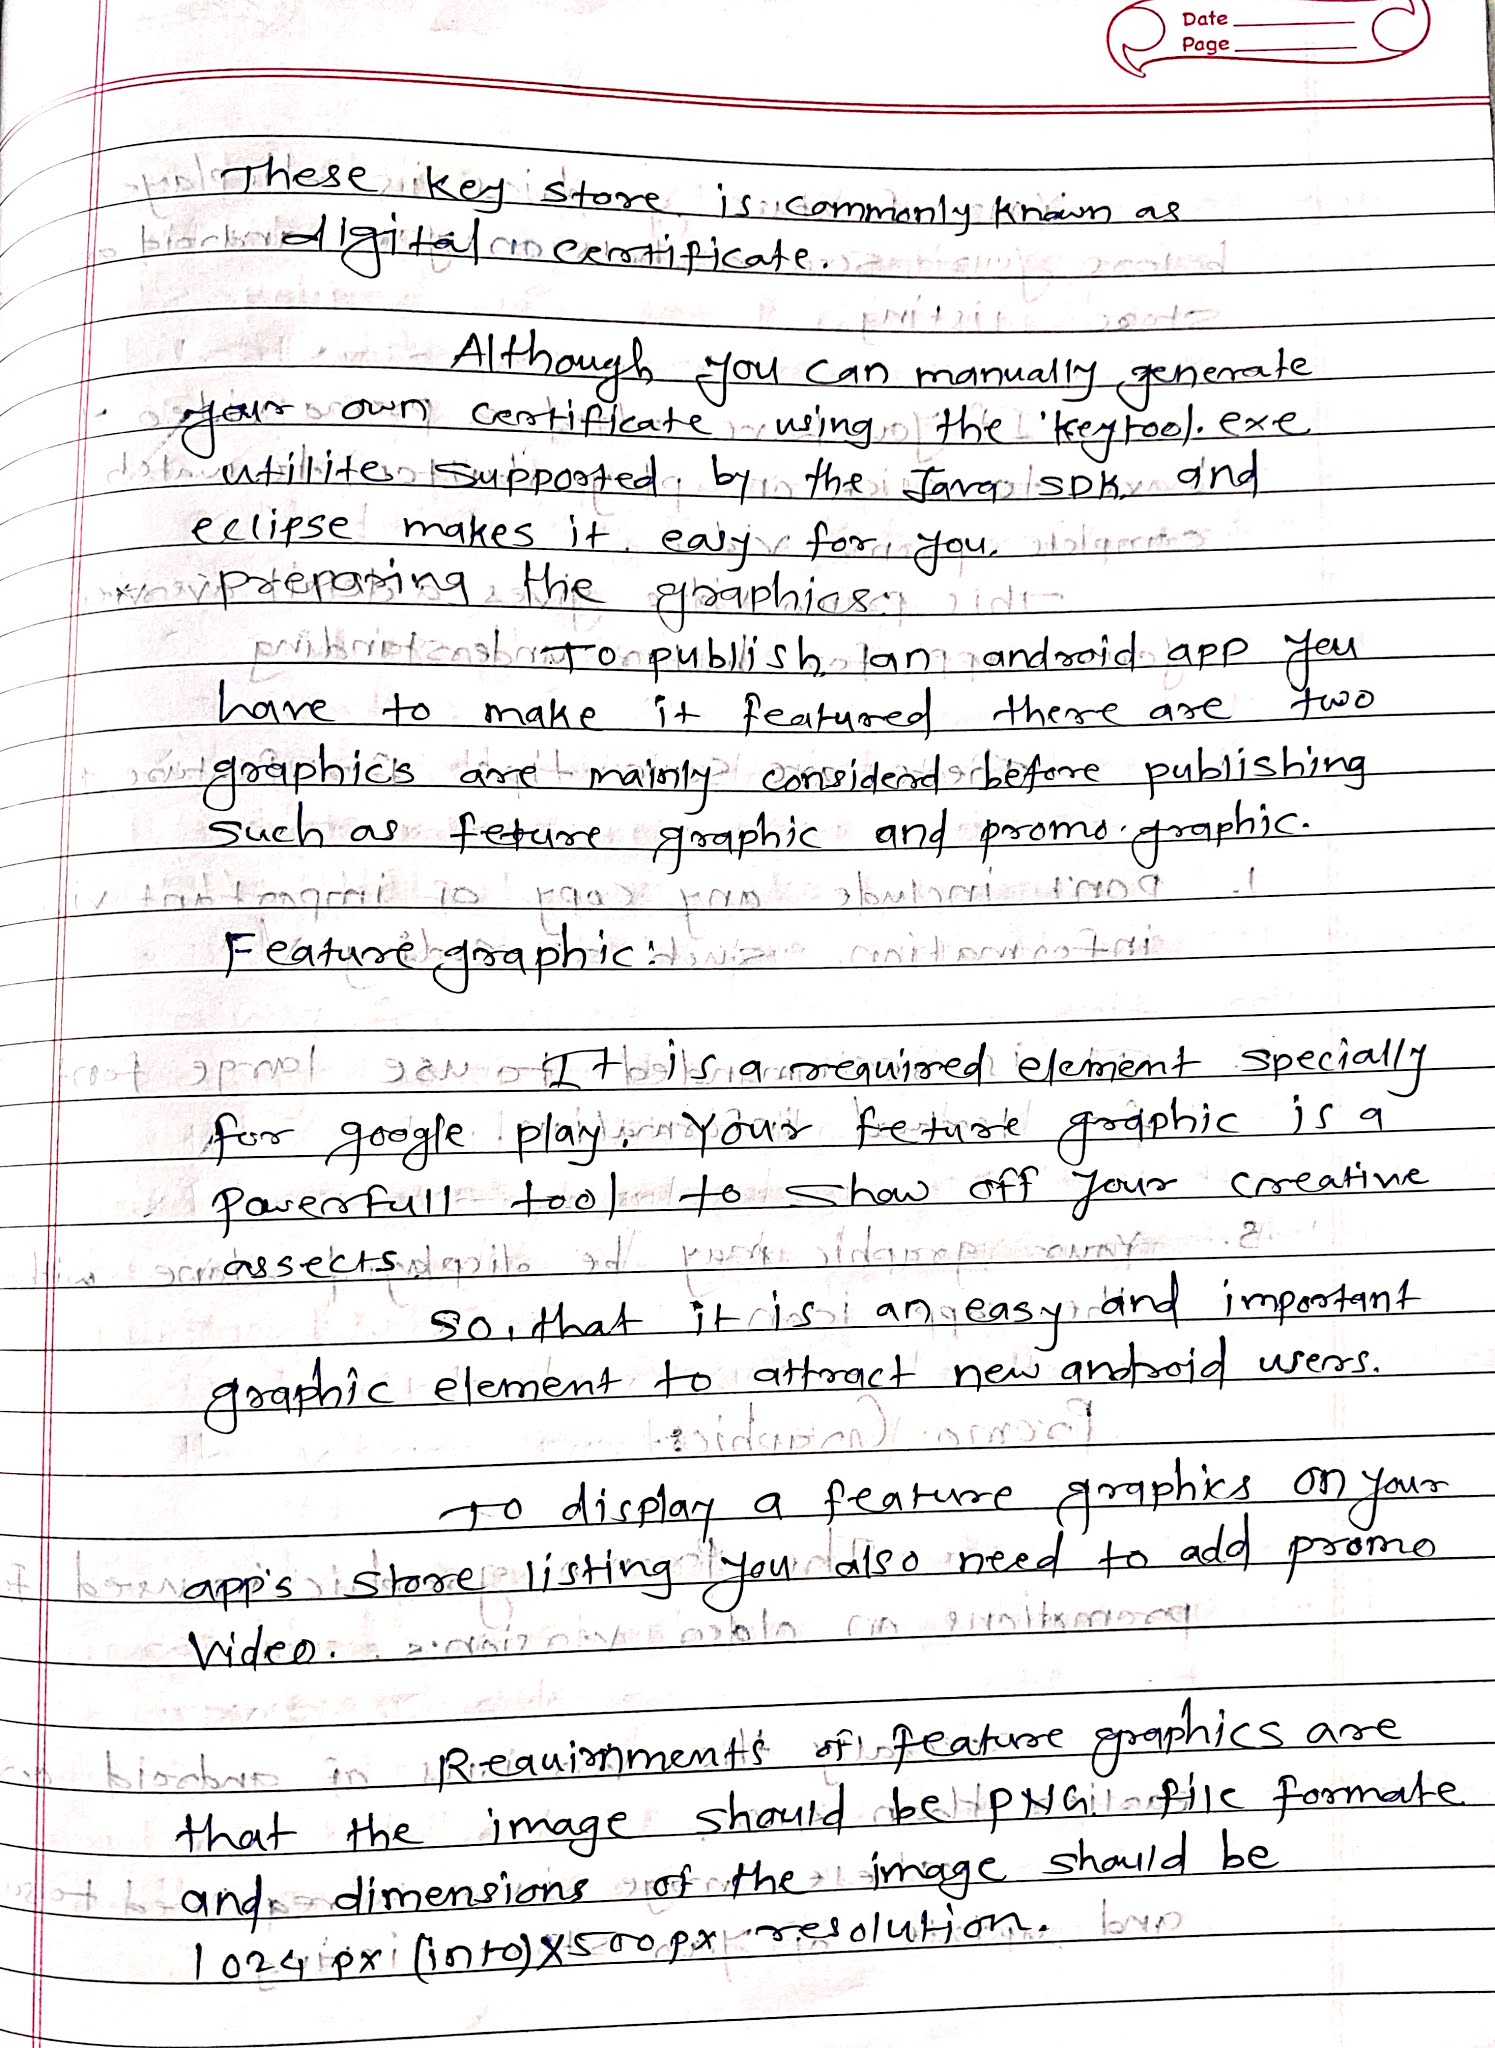 Date
Page
These key store is commonly known as
digital certificate.
Although you can manually generate
your own certificate using the 'keytool.exe
utilite supported by the Java SDK and
eclipse makes it easy for you.
preparing the graphics:
To publish an android app you
have to make it featured there are two
graphics are mainly considerd before publishing
such as feture graphic and promo graphic.
Feature graphic:
It is a required element specially
for google play. Your feture graphic is a
powerfull tool to show off your creative
assects.
So, that it is an easy and important
graphic element to attract new android users.
To display a feature graphics on your
app's store listing you also need to add promo
video.
Requirnments of feature graphics are
that the image should be PNG file formate
and dimensions of the image should be
1024 px (into) X 500 px resolution.